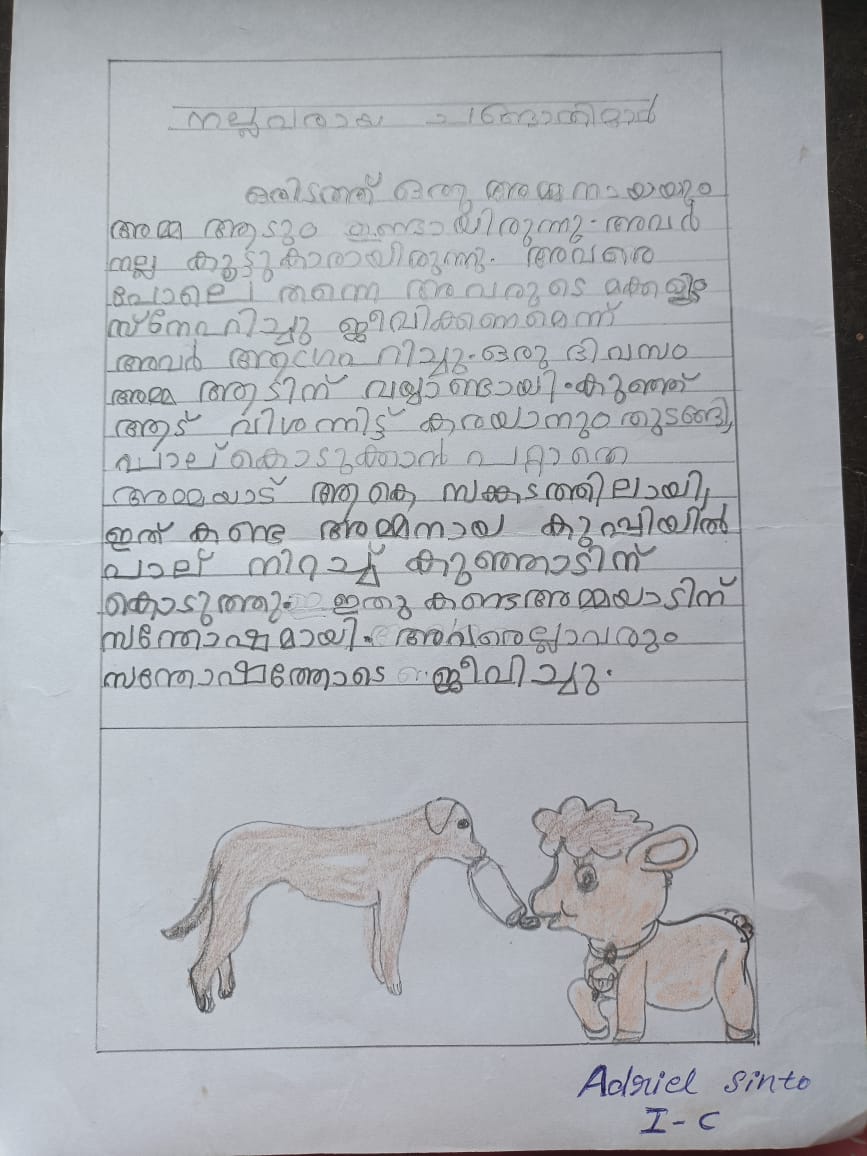 നല്ലവരായ ചങ്ങാതിമാർ
ഒരിടത്ത് ഒരു അമ്മനായയും
അമ്മ ആടും ഉണ്ടായിരുന്നു. അവർ
നല്ല കൂട്ടുകാരായിരുന്നു. അവരെ
പോലെ തന്നെ അവരുടെ മക്കളും
സ്നേഹിച്ചു ജീവിക്കണമെന്ന്
അവർ ആഗ്രഹിച്ചു. ഒരു ദിവസം
അമ്മ ആടിന് വയ്യാണ്ടായി. കുഞ്ഞ്
ആട് വിശന്നിട്ട് കരയാനും തുടങ്ങി,
പാല് കൊടുക്കാൻ പറ്റാതെ
അമ്മയാട് ആകെ സങ്കടത്തിലായി,
ഇത് കണ്ട അമ്മനായ കുപ്പിയിൽ
പാല് നിറച്ച് കുഞ്ഞാടിന്
കൊടുത്തു. ഇതു കണ്ട അമ്മയാടിന്
സന്തോഷമായി. അവരെല്ലാവരും
സന്തോഷത്തോടെ ജീവിച്ചു.
Adriel Sinto
I - C